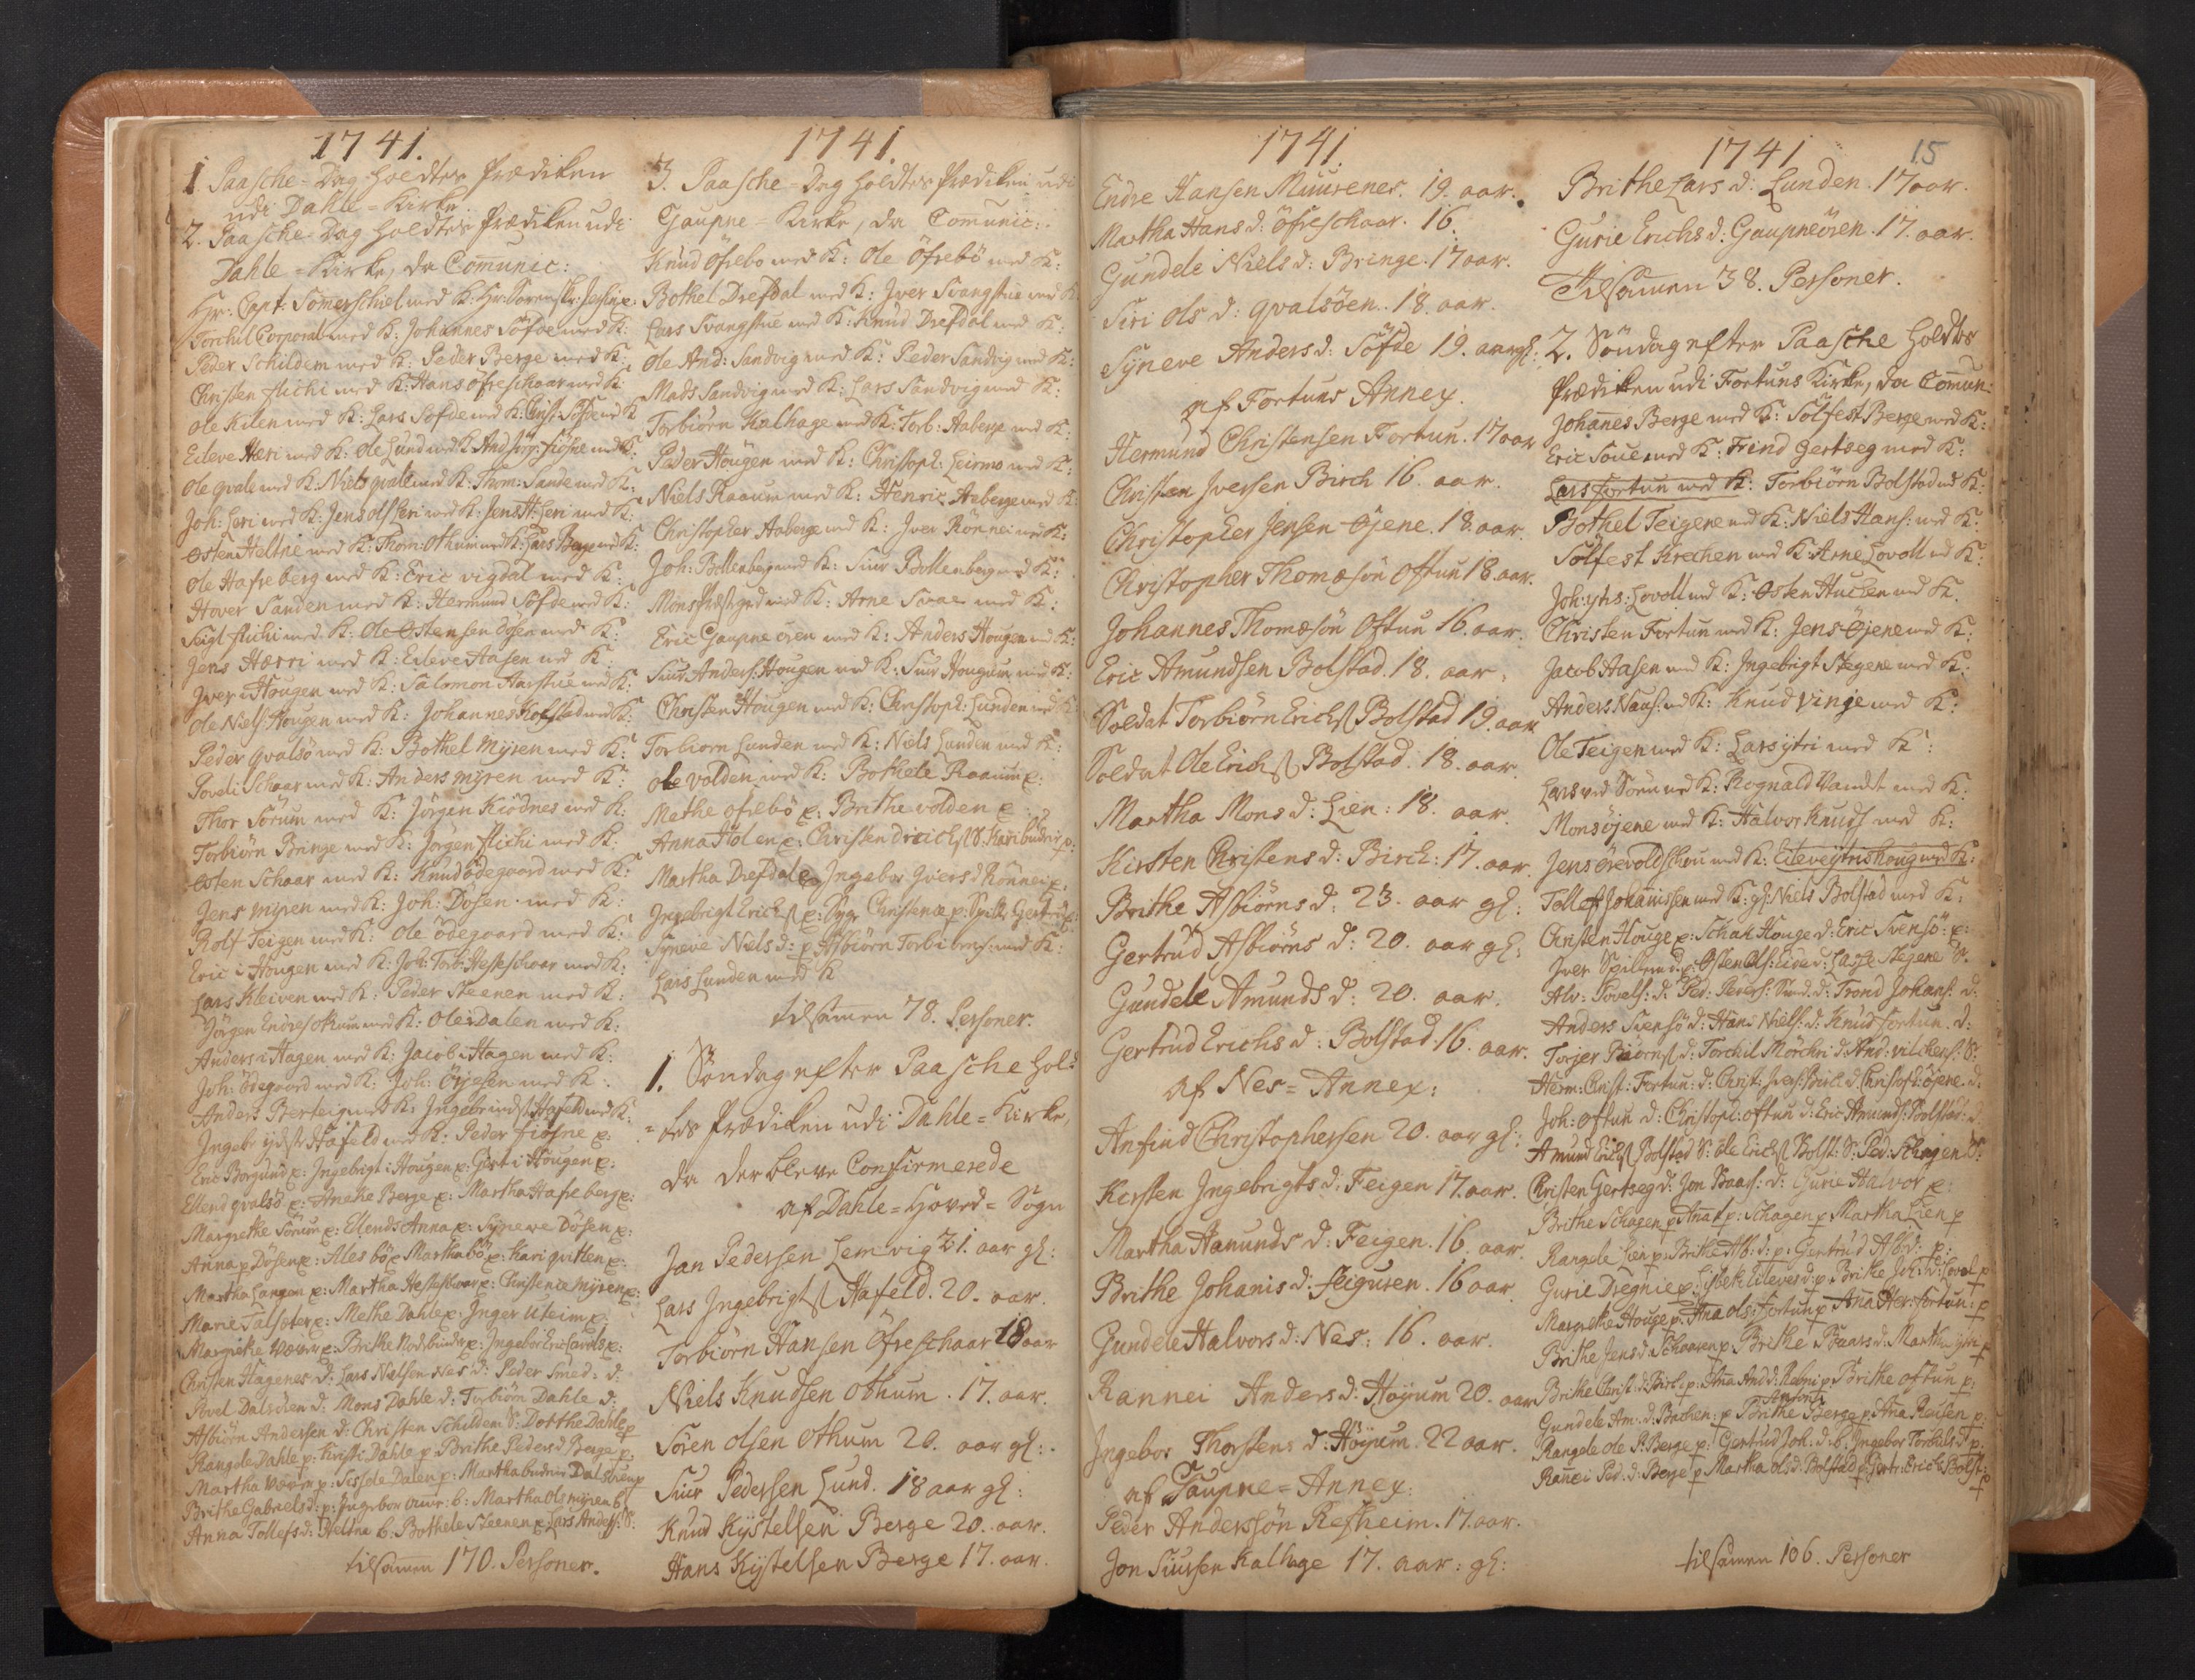 1741.
1. Paasche-Dag holdtes Prædiken
udi Dahle-Kirke.
2. Paasche-Dag holdtes Prædiken udi
Dahle-Kirke, da Comunic:
Hr: Capt: Somerschiel med K: Hr: Sorenskr:
Torchil Corporal med K: Johannes Söfde med K:
Peder Schildem med K: Peder Berge med K:
Christen flichi med K: Hans öfreschaar med K:
Ole Kilen med K: Lars Söfde med K: Christ: Söfde med K
Eileve Hæri med K: Ole Lund med K: And: Jörg: fiösne med K:
Ole qvale med K: Niels qvale med K: Thom: Sande med K:
Joh: Leri med K: Jens Ols: Leri med K: Jens H: Leri med K:
Østen Heltne med K: Thom: Othum med K: Lars Berge med K:
Ole Hafreberg med K: Eric vigdal med K:
Hover Sanden med K: Hermund Söfde med K:
flichi med K: Ole Østensen Dösen med K:
Jens Hærri med K: Eileve Aasen med K:
Iver i Hougen med K: Salomon Aarstue med K:
Ole Niels: Hougen med K: Johannes Kolstad med K:
Peder qvalsö med K: Bothel Myren med K:
Povel i Schaar med K: Anders myren med K:
Thor Sörum med K: Jörgen Kiödnes med K:
Torbiörn Bringe med K: Jörgen flichi med K:
Østen Schaar med K: Knud ödegaard med K:
Jens myren med K: Joh: Dösen med K:
Rolf Teigen med K: Ole ödegaard med K:
Eric i Hougen med K: Joh: Torb: Hesteschaar med K:
Lars Kleiven med K: Peder Steenen med K:
Jörgen Endres: Othum med K: Ole i Dalen med K:
Anders i Hagen med K: Jacob i Hagen med K:
Joh: ödegaard med K: Joh: Örjesen med K:
Anders Berteig med K: Hafeld med K:
Ingebr: Hafeld med K: Peder fiösne p:
Eric Borgund p: Ingebrigt i Hougen p: Giert i Hougen p:
Ellend qvalsö p: Aneke Berge p: Martha Hafreberg p:
Margrethe Sörum p: Ellends Anna p: Syneve Dösen p:
Anna p Dösen p: Ales bö p Martha bö p: Kari qvitlen p:
Martha Langøen p: Martha Hesteschaar p: Christence Myren p:
Marie p: Methe Dahle p: Inger Uteim p:
Margrethe Væver p: Brithe Nodsbinder p: Ingebor p:
Christen Hagenes d: Lars Nielsen Nes d: Peder Smed: d:
Povel Dalsören d: Mons Dahle d: Torbiörn Dahle d:
Asbiörn Andersen d: Christen Schildem S: Dorthe Dahle p
Rangele Dahle p: Kirsti Dahle p Brithe Peders d Berge p:
Martha Væver p: Sissele Dalen p: Martha budeie Dalsören p
Brithe Gabriels d: p: Ingebor Amr: b: Martha Ols: myren b:
Anna Tollefs d: Heltne b: Bothele Steenen p: Lars Anders: S:
tilsamen 170. Personer.
1741.
3. Paasche-Dag holdtes Prædiken udi
Gaupne-Kirke, da Comunic:
Knud Öfrebo med K: Ole Öfrebö med K:
Bothel Drefdal med K: Iver Svangstue med K:
Lars Svangstue med K: Knud Drefdal med K:
Ole And: Sandvig med K: Peder Sandvig med K:
Mads Sandvig med K: Lars Sandvig med K:
Torbiörn Kalhage med K: Torb: Aaberge med K:
Peder Hougen med K: Christoph: Leirmo med K:
Niels Raaum med K: Henric Aaberge med K:
Christopher Aaberge med K: Iver Rönnei med K:
Joh: Bollenberg med K: Siur Bollenberg med K:
Mons med K: Arne med K:
Eric Gaupneören med K: Anders Hougen med K:
Siur Anders: Hougen med K: Siur Hougum med K:
Christen Hougen med K: Christoph: Lunden med K
Torbiorn Lunden med K: Niels Lunden med K:
Ole volden med K: Bothele Raaum p:
Methe öfrebö p: Brithe volden p
Anna Hölen p: Christen S: Kari budeie p:
Martha Drefdal p Ingebor Ivers d Rönnei p:
Ingebrigt Erichs p: Christence p: Gertrud p:
Syneve Niels d: p Asbiörn Torbiörns: med K:
Lars Lunden med K
tilsamen 78. Personer.
1. Söndag efter Paasche hold:
=tes Prædiken udi Dahle-Kirke,
da der bleve Confirmerede
af Dahle-Hoved-Sogn
Jan Pedersen Lemvig 21. aar gl:
Lars Ingebrigts Hafeld. 20. aar.
Torbiörn Hansen Öfreschaar 18 aar
Niels Knudsen Othum. 17. aar.
Sören Olsen Othum 20. aar gl:
Siur Pedersen Lund. 18 aar gl:
Knud Kystelsen Berge 20. aar.
Hans Kystelsen Berge 17. aar.
1741.
Endre Hansen Muurenes. 19. aar.
Martha Hans d: öfreschaar. 16.
Gundele Niels d: Bringe. 17 aar.
Siri Ols d: qvalsöen. 18. aar.
Syneve Anders d: Söfde 19. aar gl:
af Fortuns Annex.
Hermund Christensen Fortun. 17 aar
Christen Iversen Birch 16. aar.
Christopher Jensen Öjene. 18. aar.
Christopher Thomæsön Oftun 18. aar.
Johannes Thomæsön Oftun 16. aar.
Eric Amundsen Bolstad. 18. aar.
Soldat Torbiörn Erichs Bolstad 19. aar
Soldat Ole Erichs Bolstad. 18. aar.
Martha Mons d: Lien: 18. aar.
Kirsten Christens d: Birch: 17. aar.
Brithe Asbiörns d: 23. aar gl:
Gertrud Asbiörns d: 20. aar gl:
Gundele Amunds d: 20. aar.
Gertrud Erichs d: Bolstad. 16. aar.
af Nes-Annex:
Anfind Christophersen 20. aar gl:
Kirsten Ingebrigts d: Feigen 17. aar.
Martha Aamunds d: Feigen. 16. aar.
Brithe Johanis d: feiguren. 16 aar.
Gundele Halvors d: Nes: 16. aar.
Rannei Anders d: Höyum 20. aar
Ingebor Thorstens d: Höyum 22 aar.
af Gaupne-Annex:
Peder Anderssön Refheim. 17. aar.
Jon Siursen Kalhage 17. aar: gl:
1741
15
Brithe Lars d: Lunden. 17 aar.
Gurie Erichs d: Gaupneören. 17. aar.
Tilsamen 38. Personer.
2. Söndag efter Paasche holdtes
Prædiken udi Fortuns Kirke, da Comun:
Johanes Berge med K: Sölfest Berge med K:
Eric med K: Trind Gertseg med K:
Lars Fortun med K: Torbiörn Bolstad md K:
Bothel Teigene md K: Niels Hans: md K:
Sölfest Krechen md K: Arne Lovoll md K:
Joh: Lovoll md K: Østen md K.
Christen Fortun md K: Jens Öjene md K:
Jacob Aasen md K: Ingebrigt Stegene med K:
Anders md K: Knud Vinje med K:
Ole Teigen med K: Lars ytri med K:
Lars md K: Rognald Vandt med K:
Mons öjene med K: Halvor Knuds med K:
Jens md K:
Tollef Johannissen med K: gl: Niels Bolstad med K:
Christen Houge p: Houge d: Eric Svensö: p:
Iver d: Østen Ols: Eide d: Stegene S.
Alv: Povels: d: Ped: Peders: d: Trond Johans: d:
Anders d: Hans Niels: d: Knud Fortun. d:
Torjer d: Torchil Mörchri d: And: S:
Herm: Christ: Fortun: d: Christ: Ivers: Birch d: Christoph: öjene d:
Joh: Oftun d: Christoph: Oftun d: Eric Amunds: Bolstad: d
Amund Erichs Bolstad S: Ole Erichs Bolst: S: Ped: S:
Christen Gertseg d: Jon Baars: d: Gurie Halvor p:
Brithe Schagen p Ana p: Schagen p Martha Lien p
Rangele Lien p: Brithe Asb: d: p: Gertrud Asb: d: p:
Gurie Dregnie p: Lisbeth Eileves d: p Brithe Joh: d: Lovol p
Margrethe Houge p: Ana Ols: Fortun p Ana Her: Fortun: p
Brithe Jens d: p: Brithe Baars d: Martha
Brithe Christ: d: Birch: p: Ana And: d: p Brithe Oftun p:
Gundele Am: d: p Brithe Berge p: Ana p:
Rangele Ole d: Berge p: Gertrud Joh: d: b: Ingebor Torchils d: p:
Rannei Ped: d: Berge p Martha Ols d: Bolstad p: Gertr: Erichs Bolst: p
tilsamen 106. Personer